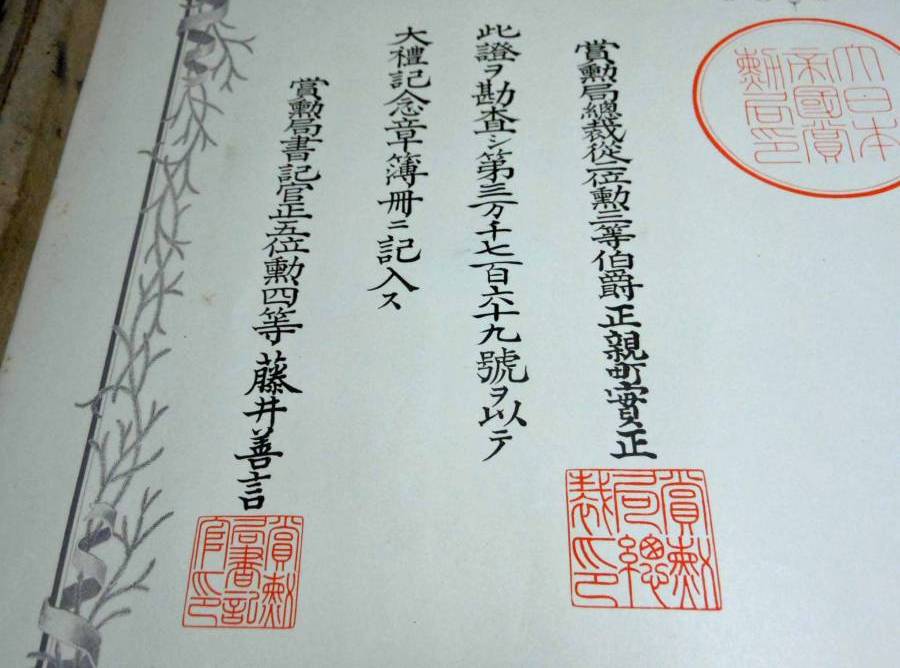 大日本
帝國賞
勳局印
賞勲局總裁從二位勲二等伯爵正親町實正
賞勳
局總
裁印
此證ヲ勘査シ第三万千七百六十九號ヲ以テ
大禮記念章簿冊ニ記入ス
賞勲局書記官正五位勲四等藤井善言
賞勳
局書記
官印